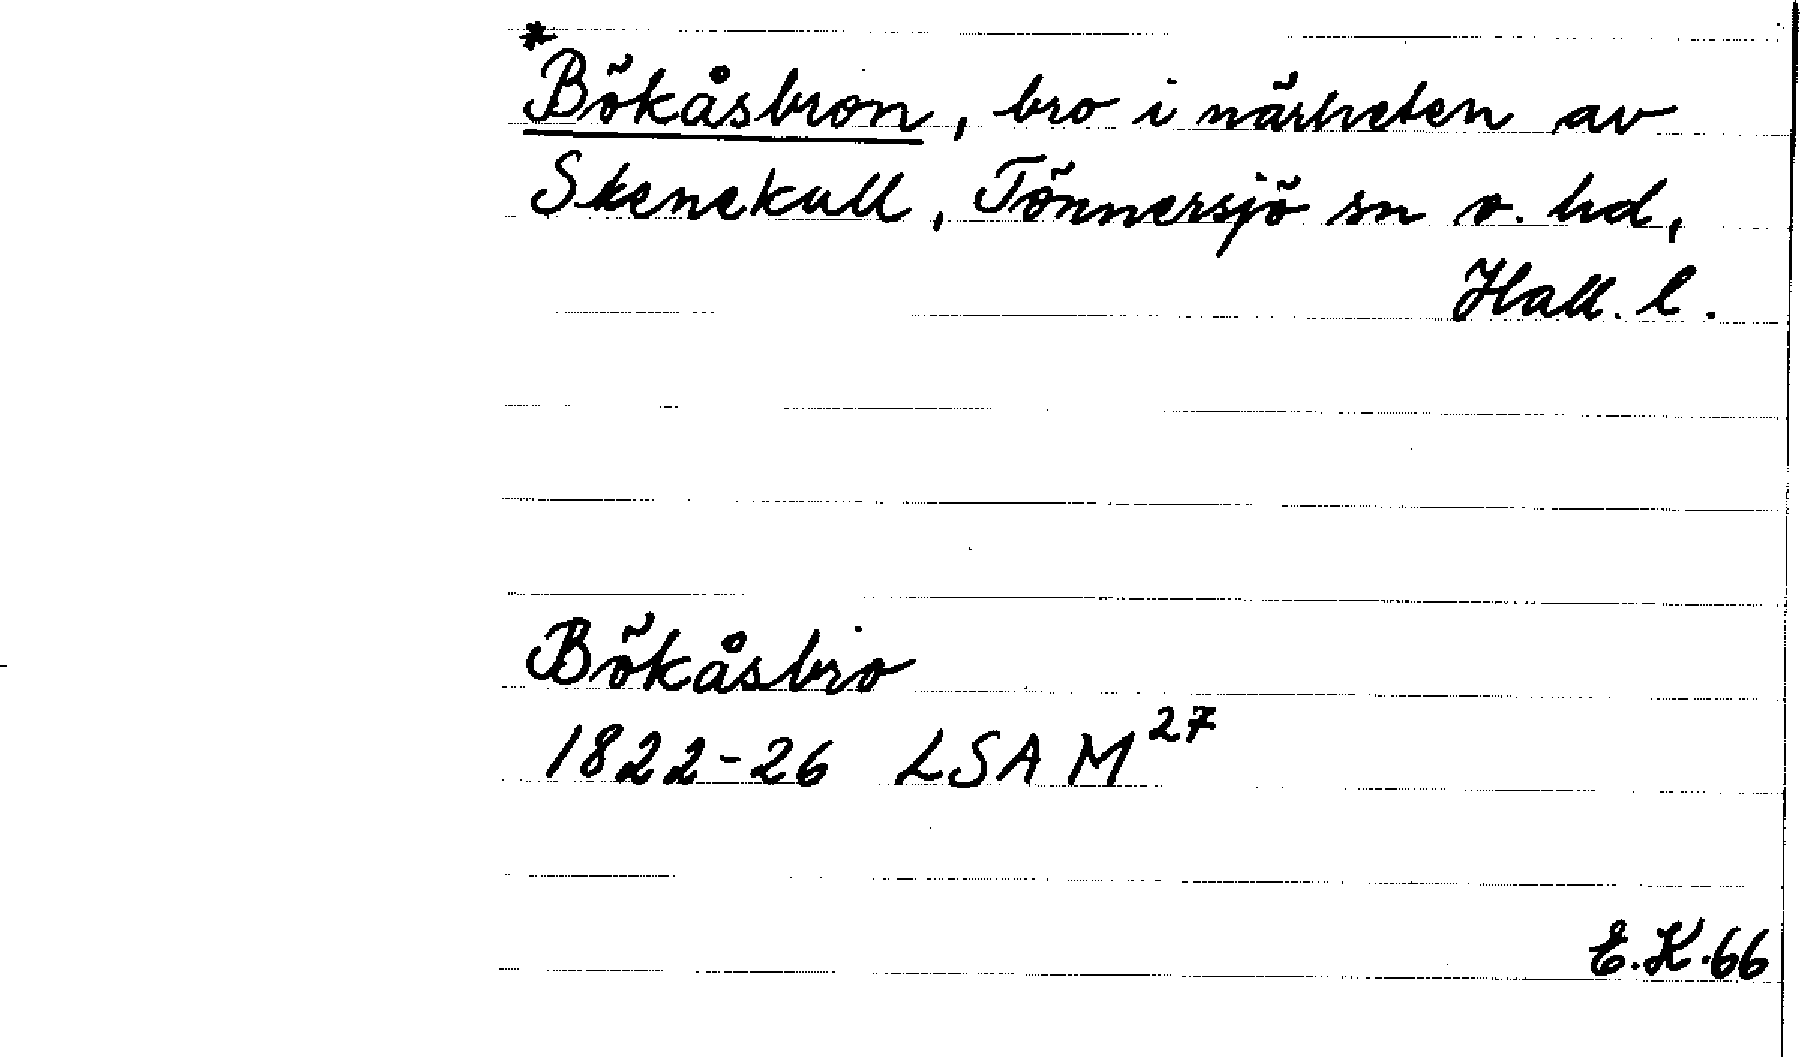 *
Bökåsbron, bro i närheten av
Skenekull, Tönnersjö sn o. hd,
Hall. l.
Bökåsbro
1822-26 LSA M²⁷
E.K.66